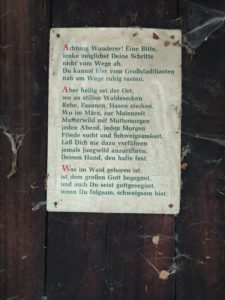 Achtung Wanderer! Eine Bitte,
lenke möglichst Deine Schritte
nicht vom Wege ab.
Du kannst hier vom Großstadthasten
nah am Wege ruhig rasten.
Aber heilig sei der Ort,
wo an stillen Waldesecken
Rehe, Fasanen, Hasen stecken.
Wo im März, zur Maienzeit
Mutterwild mit Muttersorgen
jeden Abend, jeden Morgen
Friede sucht und Schweigsamkeit.
Laß Dich nie dazu verführen
jemals Jungwild anzurühren.
Deinen Hund, den halte fest.
Was im Wald geboren ist,
ist dem großen Gott begegnet,
und auch Du seist gottgesegnet,
wenn Du folgsam, schweigsam bist.